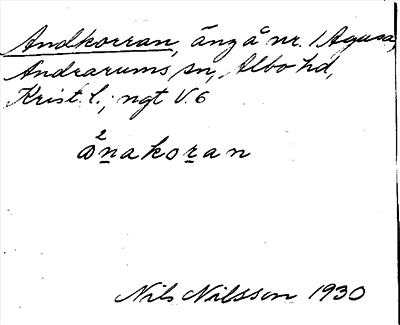 Andkorran, äng å nr. 1 Agusa,
Andrarums sn, Albo hd,
Krist. l.; ngt V. 6
²ɷn̲akor̲an
Nils Nilsson 1930